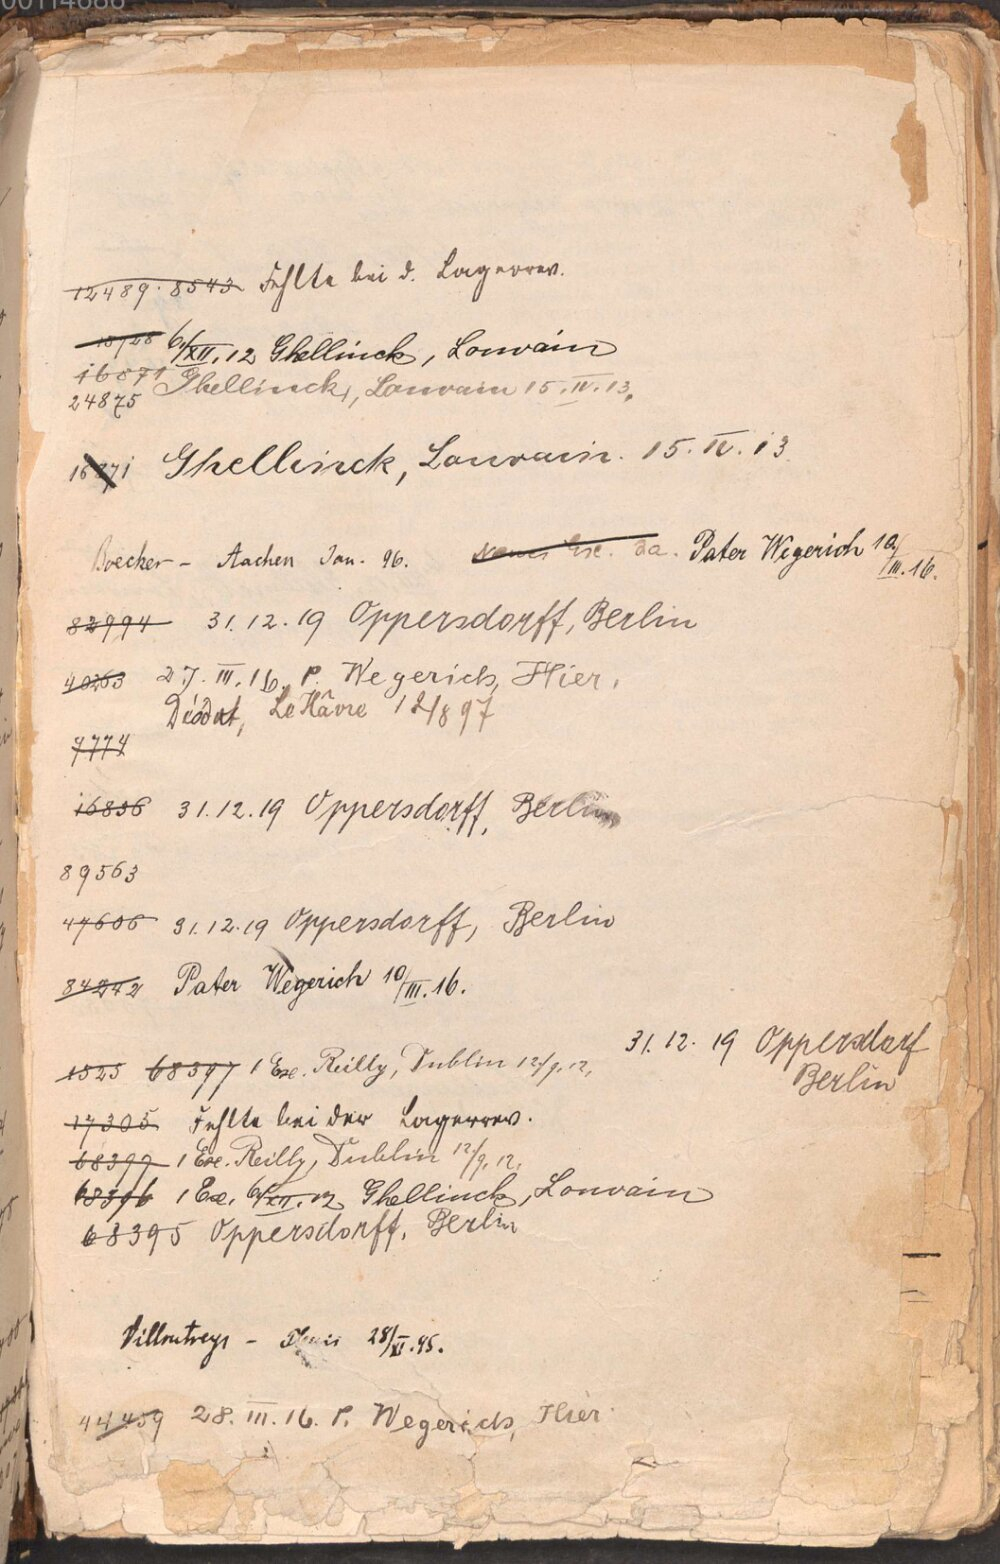 00114686
12489. 8543 Fehlte bei d. Lagerrev.
18728 6/XII.12 Ghellinck, Louvain
16871 Ghellinck, Louvain 15.IV.13.
24875
16871 Ghellinck, Louvain. 15.IV.13
Boecker - Aachen Jan. 96. Exe. da. Pater Wegerich 10/III.16.
82994 31.12.19 Oppersdorff, Berlin
40263 27.III.16. P. Wegerich, Hier.
Diodat, Le Hâvre 12/8 97
7774
16836 31.12.19 Oppersdorff, Berlin
89563
47606 31.12.19 Oppersdorff, Berlin
84242 Pater Wegerich 10/III.16.
31.12.19 Oppersdorf
Berlin
1525 68397 1 Exe. Reilly, Dublin 12/9.12.
17305 Fehlte bei der Lagerrev.
68397 1 Exe. Reilly, Dublin 12/9.12.
68396 1 Ex. 6/XII.12 Ghellinck, Louvain
68395 Oppersdorff, Berlin
Villoutreys - 28/XI.95.
44459 28.III.16. P. Wegerich, Hier